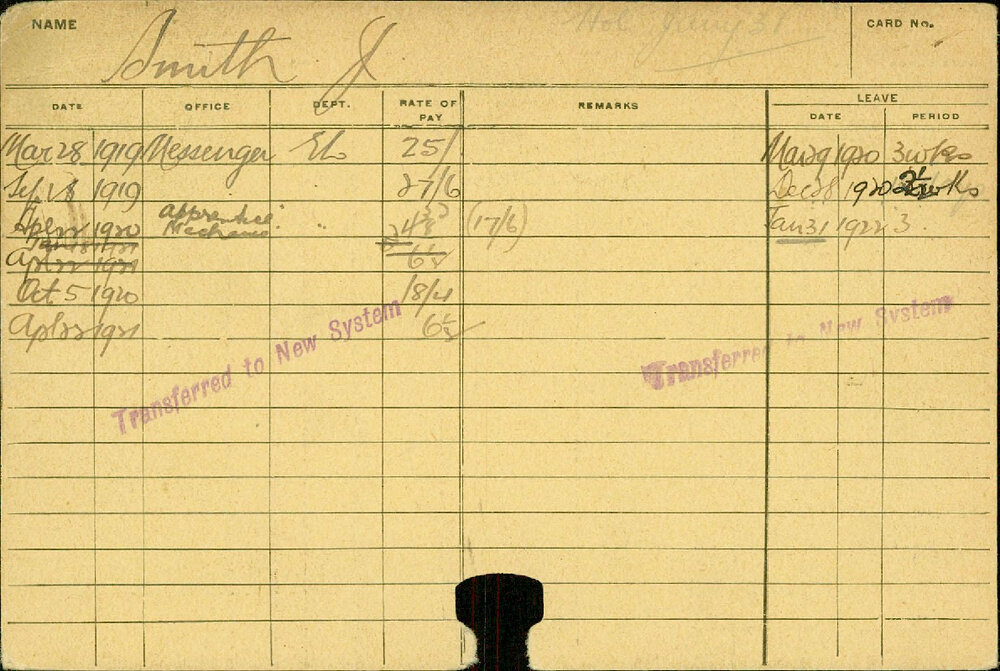 NAME Smith J CARD No.
DATE OFFICE DEPT. RATE OF PAY REMARKS LEAVE
DATE PERIOD
Mar 28 1919 Messenger 25/ 1920 3 wks
1919 27/6 Dec 28 1920 wks
Apl 22 1920 Apprentice Mechanic " (17/6) Jan 31 1922 3.
Apl 22 1921 6½
Oct 5 1920 18/4
Apl 22 1921 6½
Transferred to New System
Transferred to New System